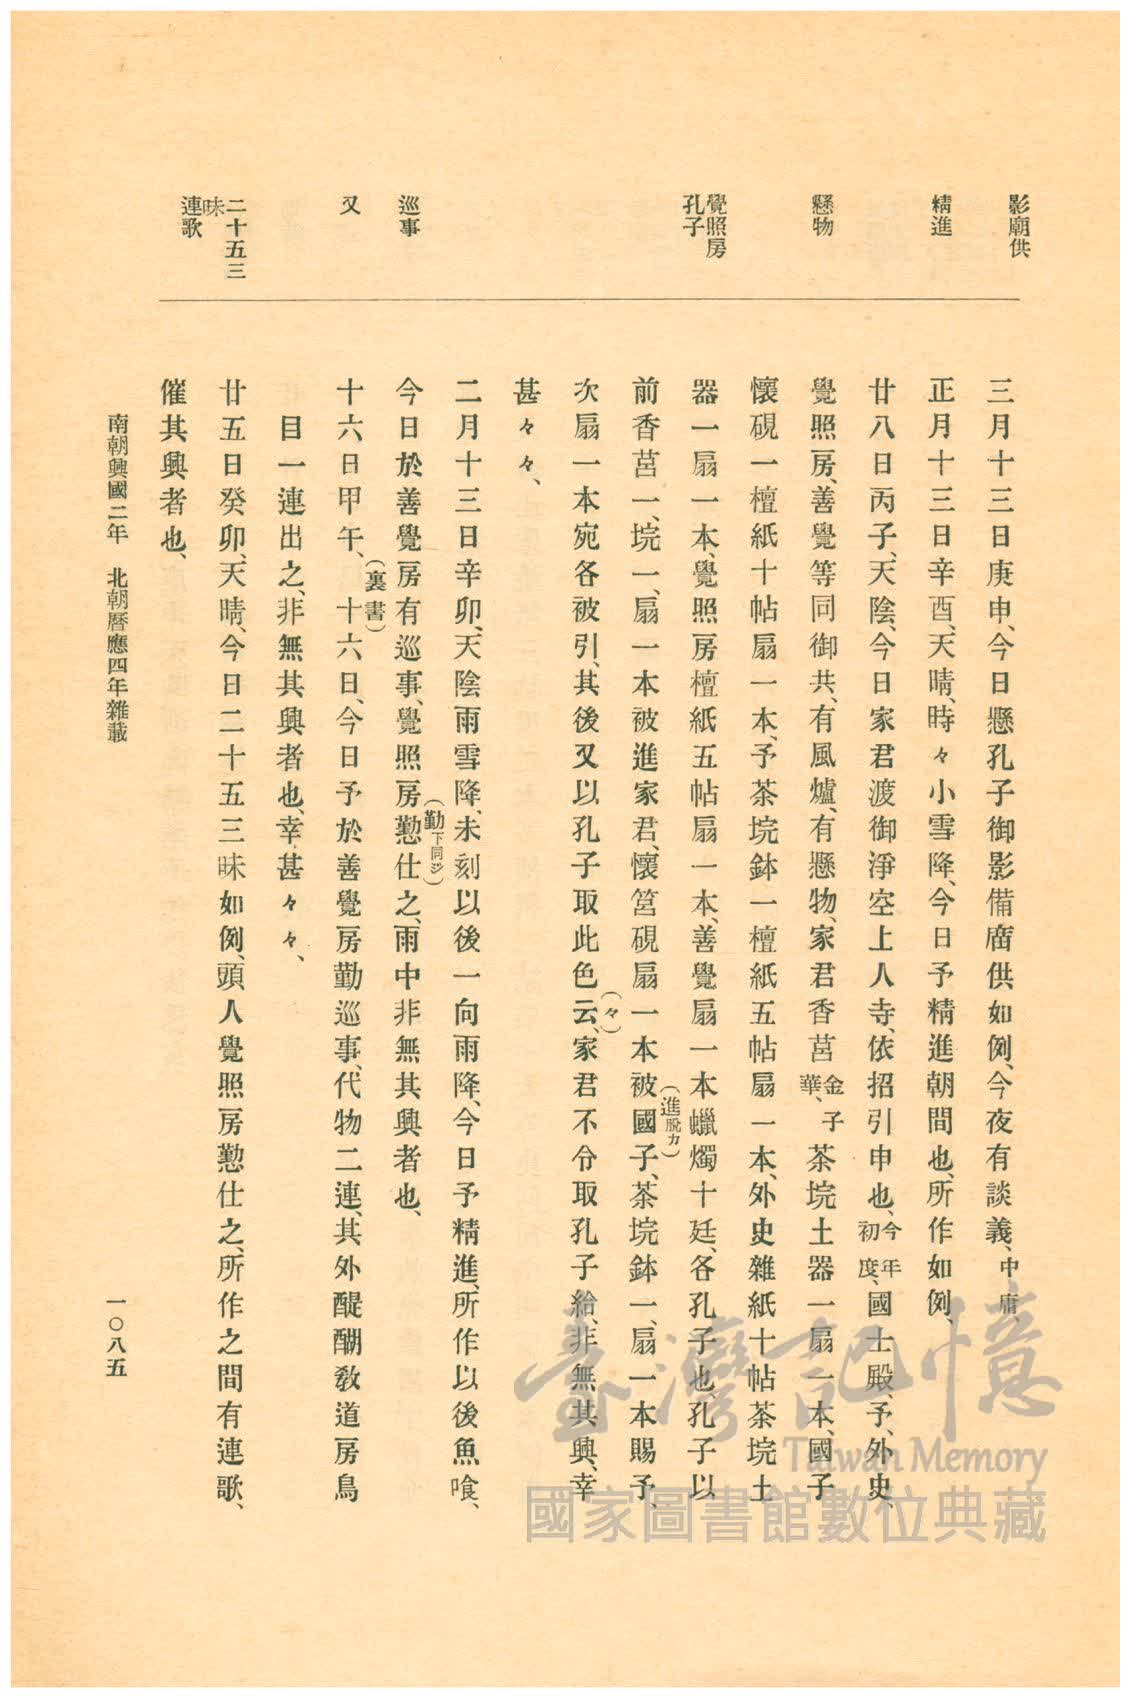 影廟供
精進
懸物
覺照房
孔子
巡事
又
二十五三
昧
連歌
三月十三日庚申、今日懸孔子御影備廟供如例、今夜有談義、中庸、
正月十三日辛酉、天晴、時々小雪降、今日予精進朝間也、所作如例、
廿八日丙子、天陰、今日家君渡御淨空上人寺、依招引申也、今年初度、國土殿、予、外史、
覺照房、善覺等同御共、有風爐、有懸物、家君香莒金子華、茶垸土器一扇一本、國子
懷硯一檀紙十帖扇一本、予茶垸鉢一檀紙五帖扇一本、外史雜紙十帖茶垸土
器一扇一本、覺照房檀紙五帖扇一本、善覺扇一本蠟燭十廷、各孔子也、孔子以
前香莒一、垸一、扇一本被進家君、懷筥硯扇一本被(進脫カ)國子、茶垸鉢一、扇一本賜予、
次扇一本宛各被引、其後又以孔子取此色云(々)、家君不令取孔子給、非無其興、幸
甚々々、
二月十三日辛卯、天陰雨雪降、未刻以後一向雨降、今日予精進、所作以後魚喰、
今日於善覺房有巡事、覺照房懃(勤下同ジ)仕之、雨中非無其興者也、
十六日甲午、(裏書)十六日、今日予於善覺房勤巡事、代物二連、其外醍醐敎道房鳥
目一連出之、非無其興者也、幸甚々々、
廿五日癸卯、天晴、今日二十五三昧如例、頭人覺照房懃仕之、所作之間有連歌、
催其興者也、
南朝興國二年 北朝曆應四年雜載
一〇八五
臺灣記憶
Taiwan Memory
國家圖書館數位典藏